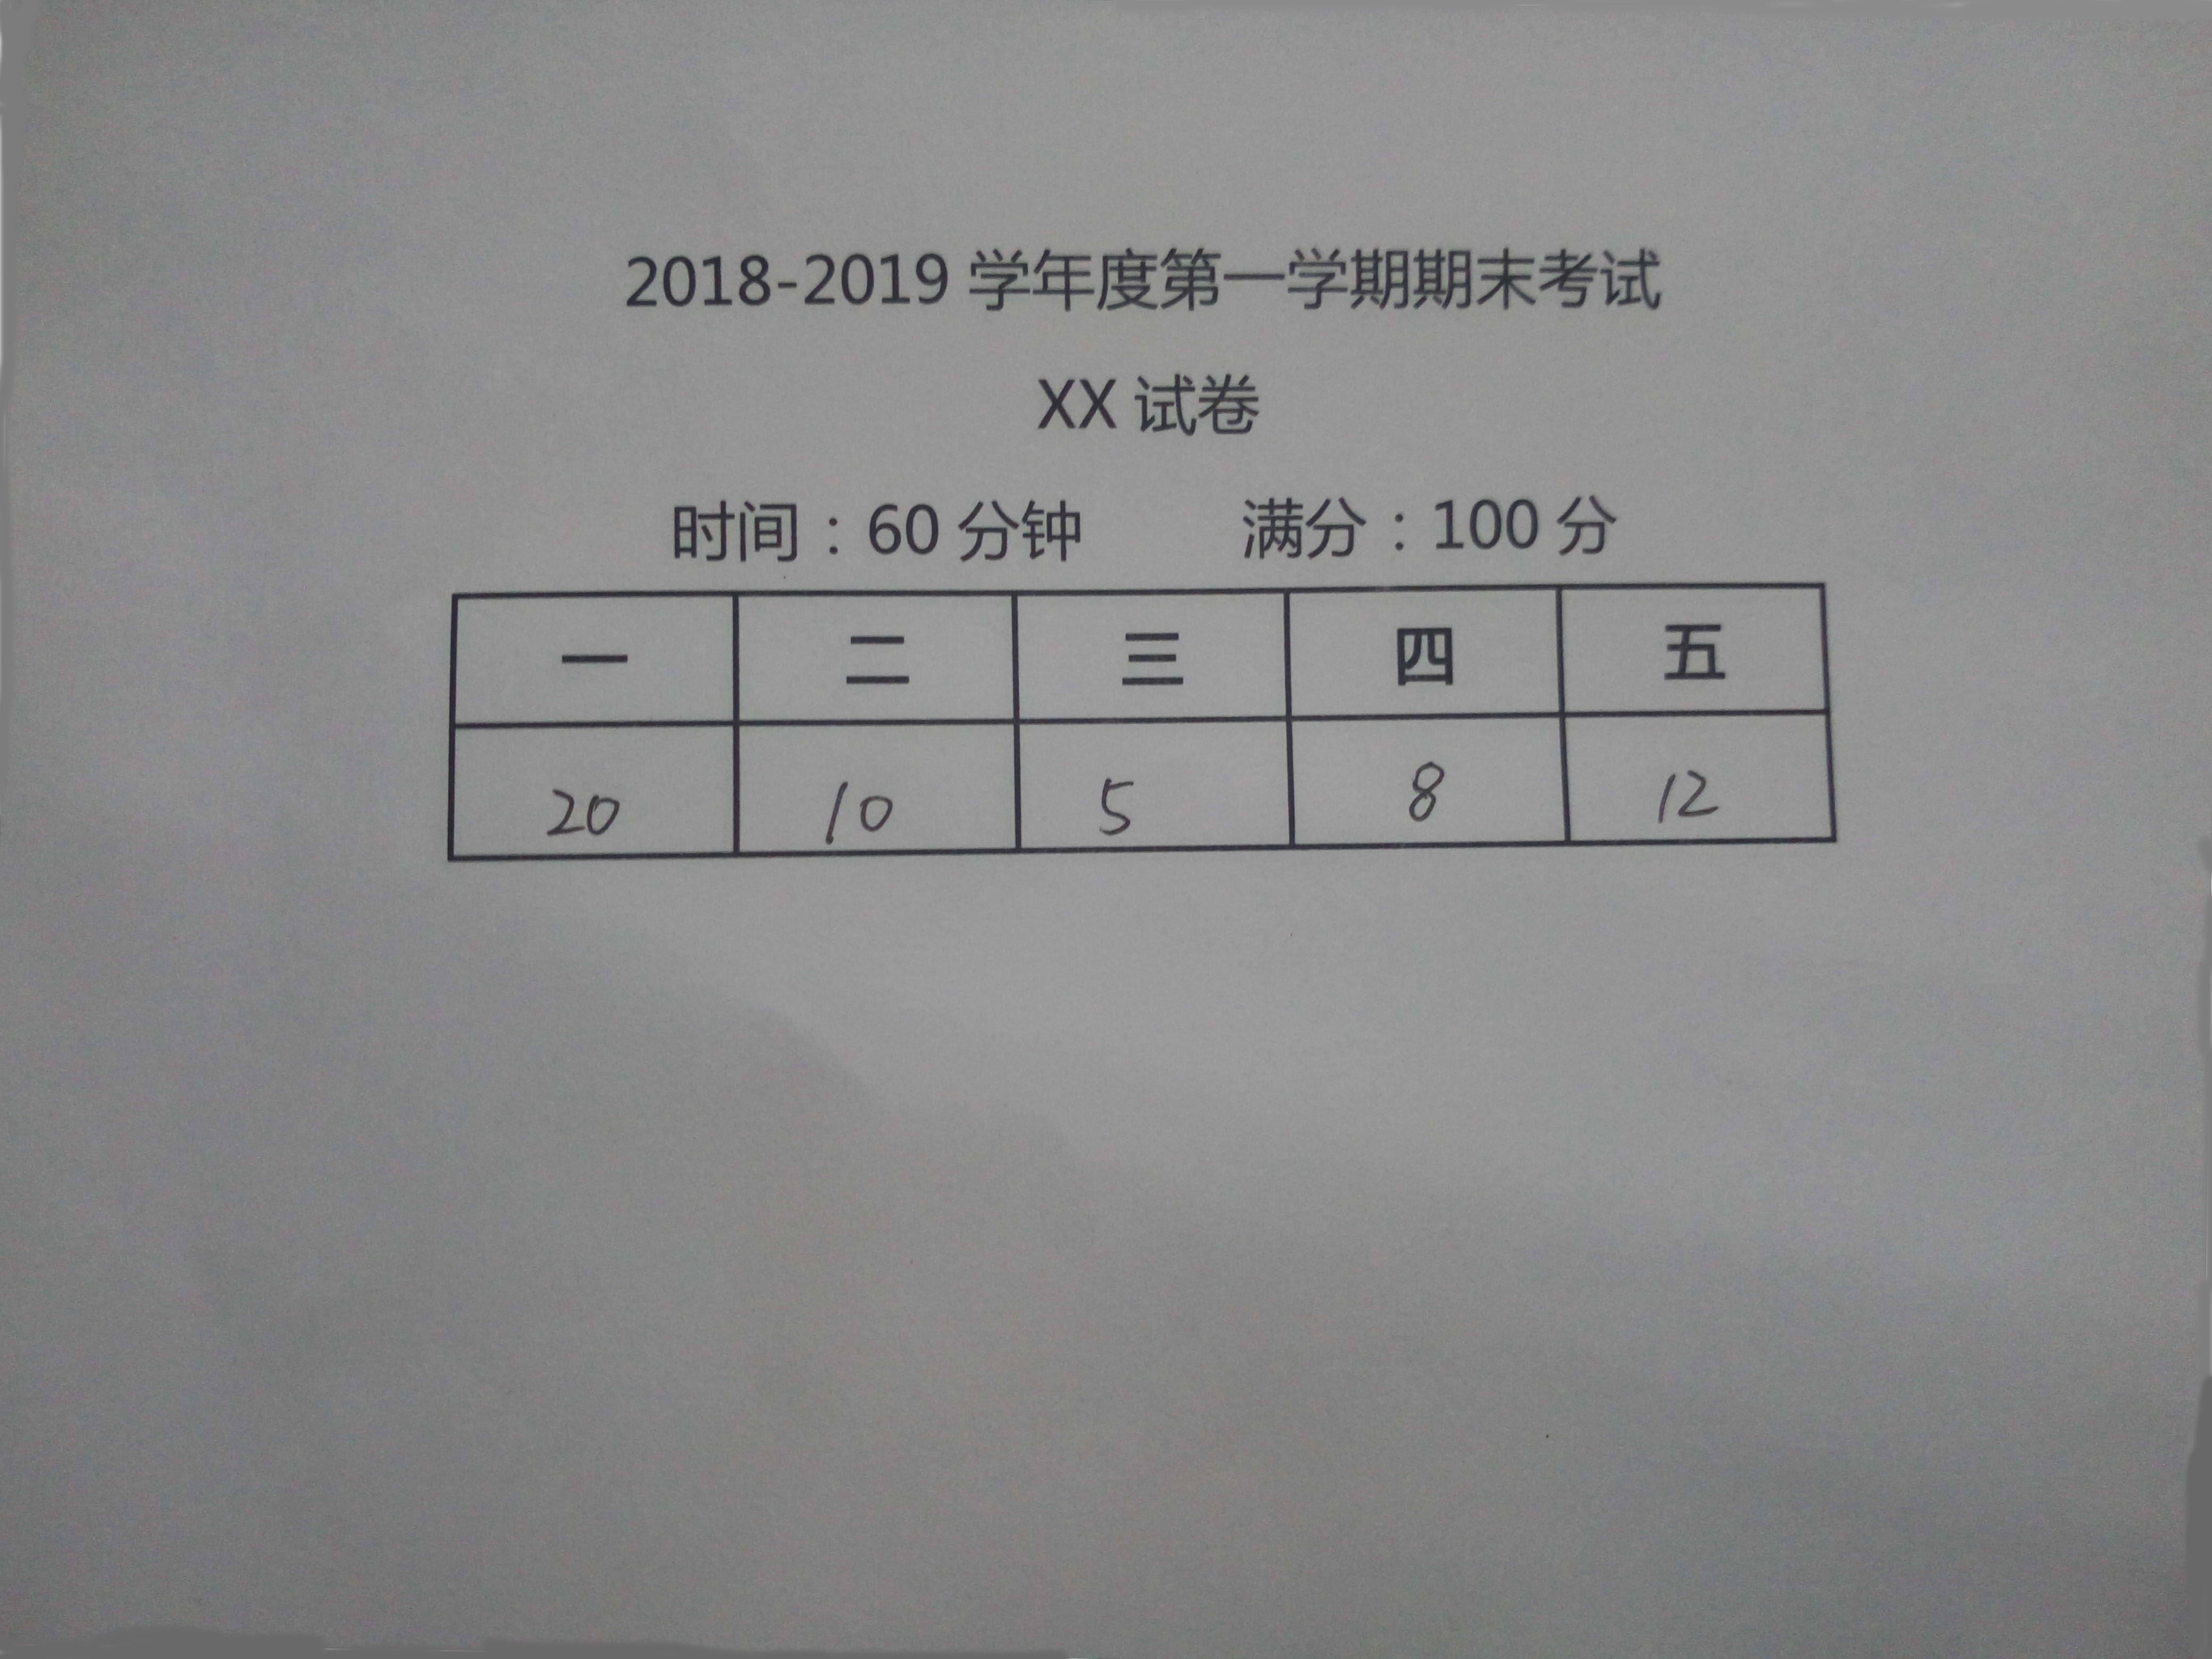 2018-2019 学年度第一学期期末考试
XX 试卷
时间：60 分钟 满分：100 分
一 二 三 四 五
20 10 5 8 12